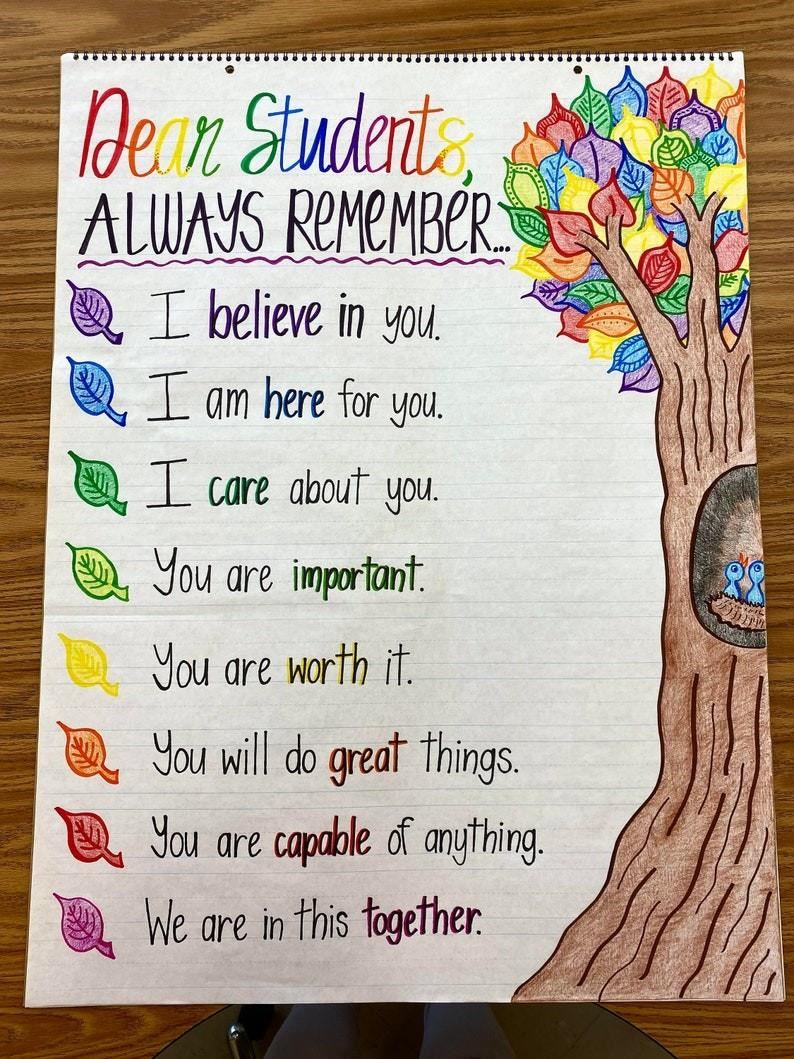 Dear Students,
ALWAYS REMEMBER...
I believe in you.
I am here for you.
I care about you.
You are important.
You are worth it.
You will do great things.
You are capable of anything.
We are in this together.